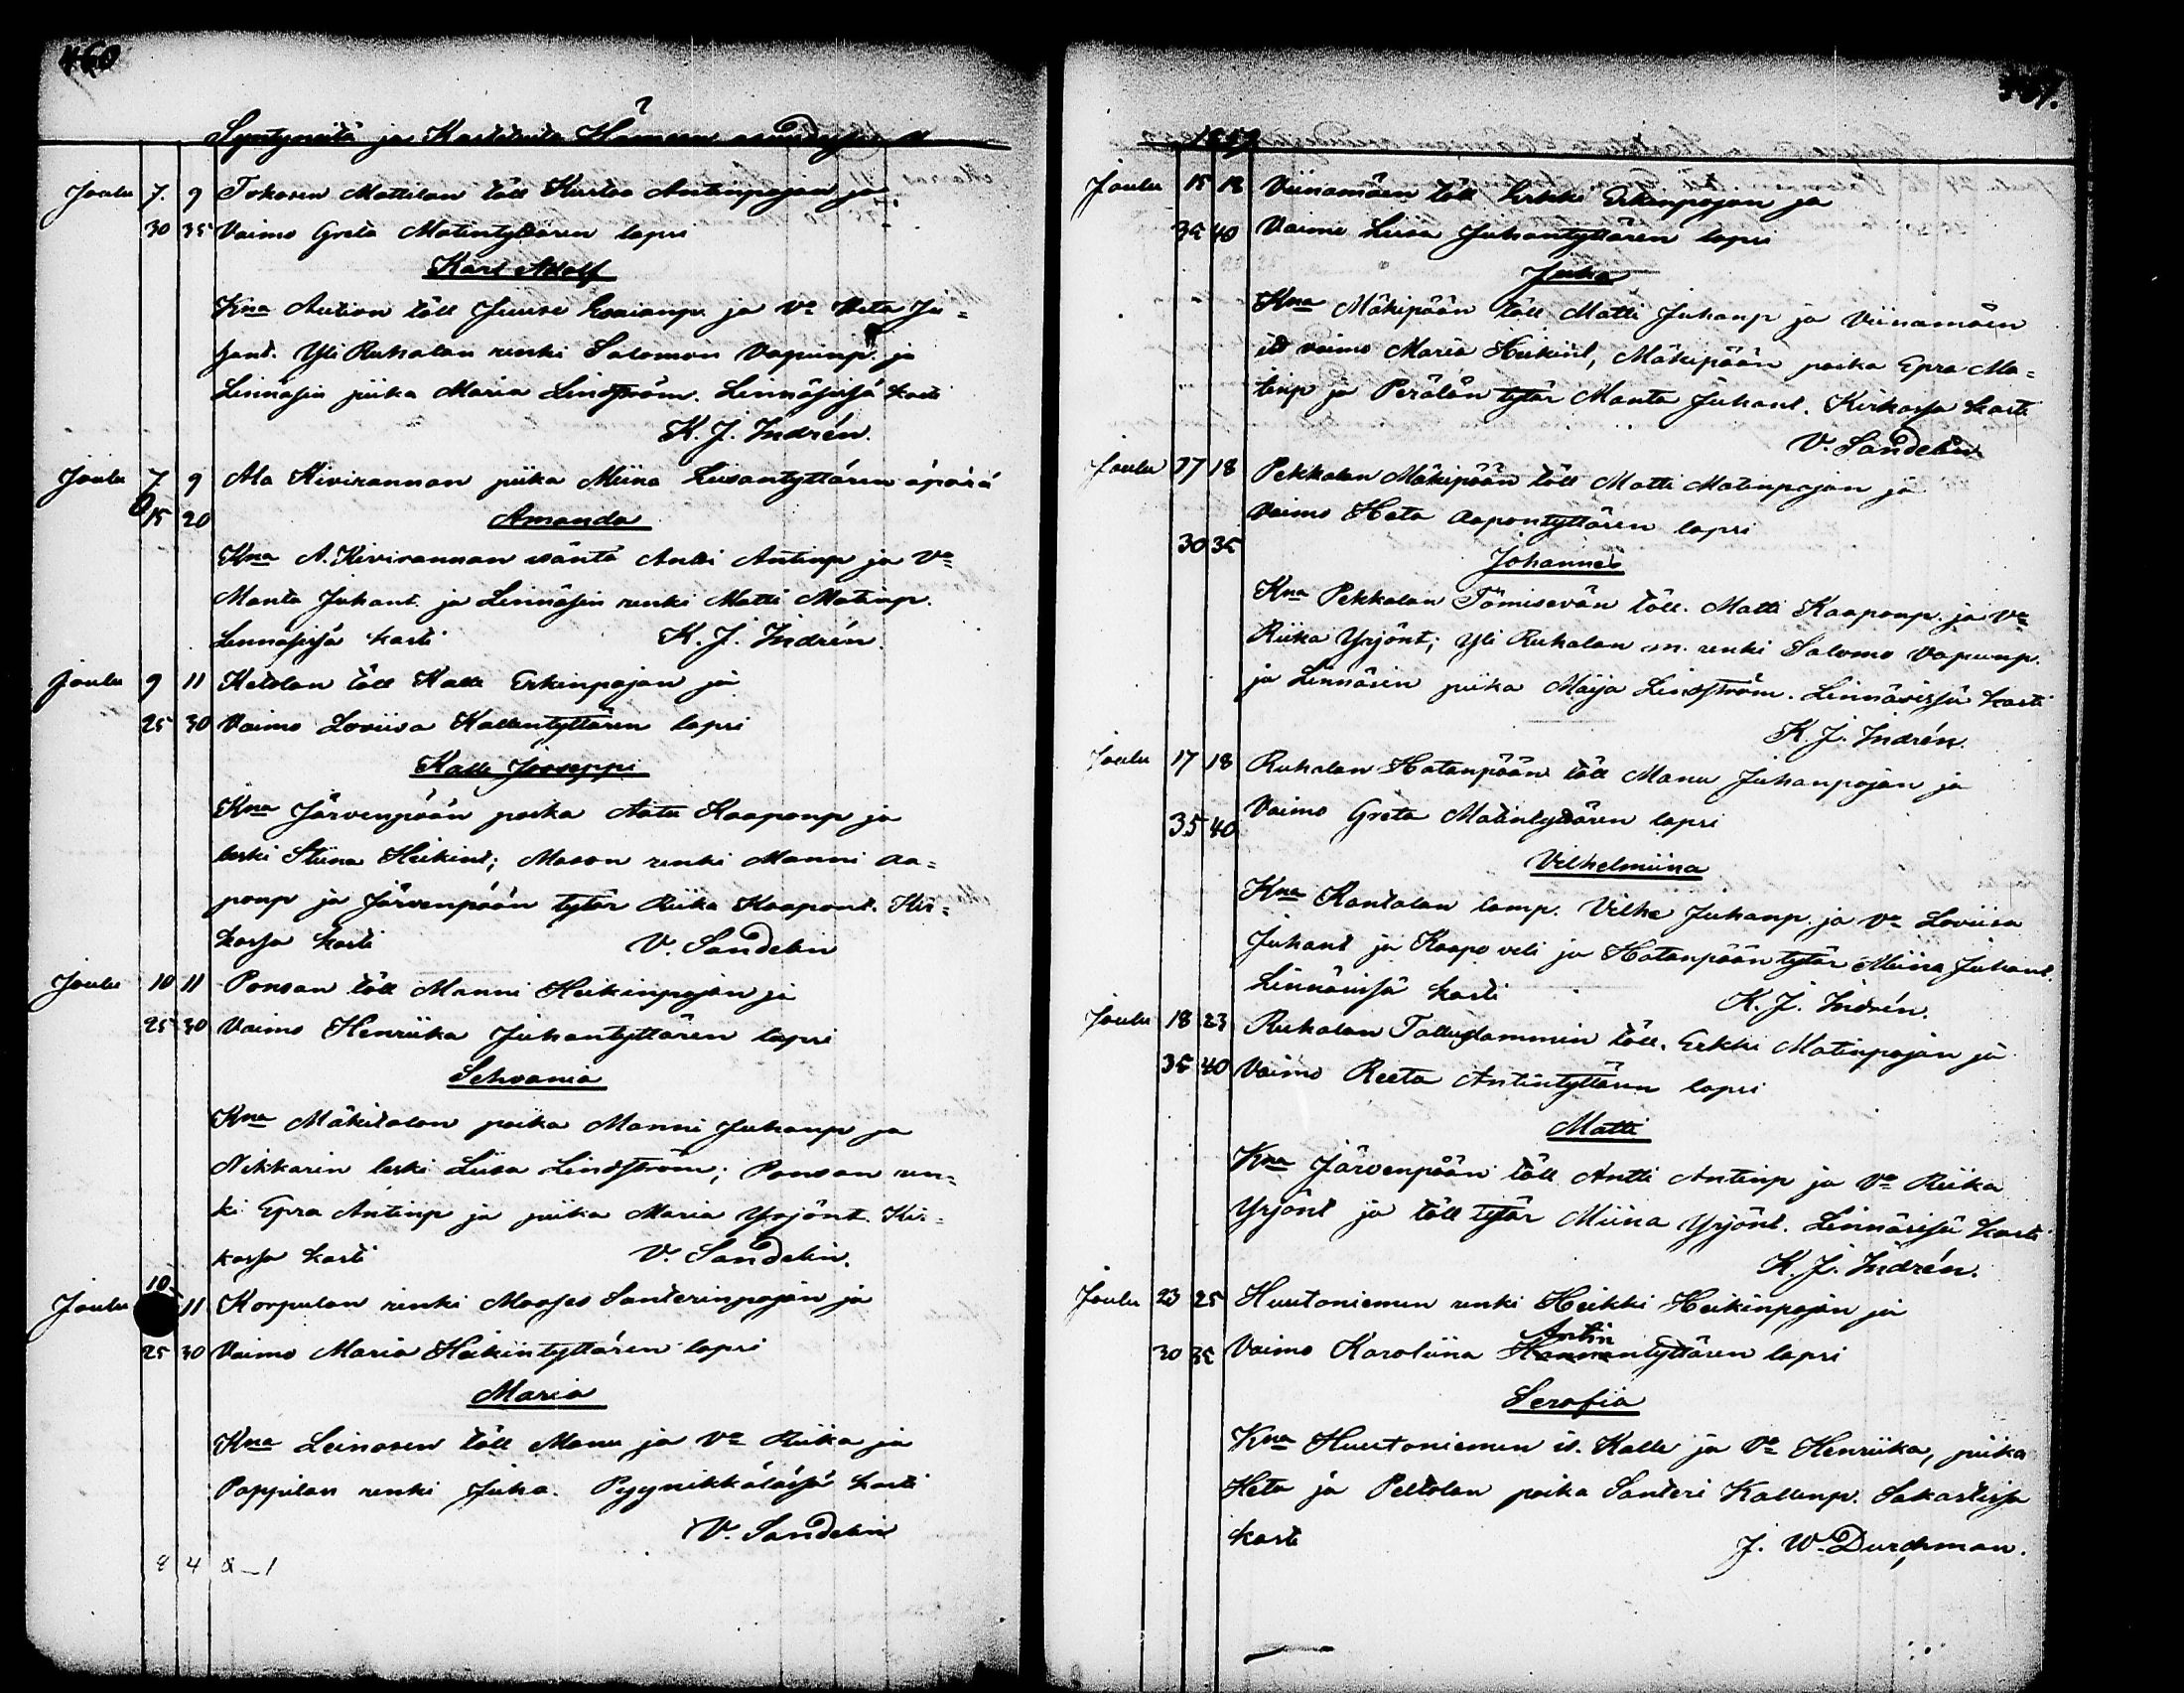 460
Syntyneitä ja Kastetuita Hämeen
Joulu 7. 9 Tokosen Mattilan töll Kustaa Antinpojan ja
30 35 Vaimo Greta Matintyttären lapsi
Karl Adolf
Kna Aution töll Juuse Esaianp. ja Va Heta Ju=
hant. Yli Ruhalan renki Salomon Vapunp. ja
Linnäsin piika Maria Lindström. Linnäsissä kasti
K. J. Indrén.
Joulu 7 9 Ala Kivirannan piika Miina Liisantyttären äpärä
0/15 20 Amanda
Kna A. Kivirannan isäntä Antti Antinp ja Va
Manta Juhant. ja Linnäsin renki Matti Matinp.
Linnäsissä kasti K. J. Indrén.
Joulu 9 11 Ketolan töll Kalle Erkinpojan ja
25 30 Vaimo Loviisa Kallentyttären lapsi
Kalle Jooseppi
Kna Järvenpään poika Aatu Kaaponp ja
leski Stiina Heikint; Mason renki Manni Aa=
ponp ja Järvenpään tytär Riika Kaapont. Kir=
kossa kasti V. Sandelin
Joulu 10 11 Ponsan töll Manni Heikinpojan ja
25 30 Vaimo Henriika Juhantyttären lapsi
Sehvania
Kna Mäkitalon poika Manni Juhanp ja
Nikkarin leski Liisa Lindström; Ponsan ren=
ki Epra Antinp ja piika Maria Yrjönt. Kir=
kossa kasti V. Sandelin.
Joulu 10 11 Korpulan renki Mooses Santerinpojan ja
25 30 Vaimo Maria Heikintyttären lapsi
Maria
Kna Leinosen töll Manu ja Va Riika ja
Pappilan renki Juha. Pyynikkälässä kasti
V. Sandelin
8 4 2_1
Joulu 15 18 Viinamäen töll Erkki Erkinpojan ja
35 40 Vaimo Liisa Juhantyttären lapsi
Juha
Kna Mäkipään töll Matti Juhanp ja Viinamäen
vaimo Maria Heikint, Mäkipään poika Epra Ma=
tinp ja Perälän tytär Manta Juhant. Kirkossa kasti
V. Sandelin
Joulu 17 18 Pekkalan Mäkipään töll Matti Matinpojan ja
Vaimo Heta Aapontyttären lapsi
30 35 Johannes
Kna Pekkalan Tömisevän töll. Matti Kaaponp. ja Va
Riika Yrjönt; Yli Ruhalan m. renki Salomo Vapunp.
ja Linnäsin piika Maija Lindström. Linnäsissä kasti
K. J. Indrén.
Joulu 17 18 Ruhalan Hatanpään töll Manu Juhanpojan ja
35 40 Vaimo Greta Matintyttären lapsi
Vilhelmiina
Kna Rantalan lamp. Vilhe Juhanp. ja Va Loviisa
Juhant ja Kaapo veli ja Hatanpään tytär Miina Juhant.
Linnäsissä kasti K. J. Indrén.
Joulu 18 23 Ruhalan Talluslammin töll. Erkki Matinpojan ja
35 40 Vaimo Reeta Antintyttären lapsi
Matti
Kna Järvenpään töll Antti Antinp ja Va Riika
Yrjönt ja töll tytär Miina Yrjönt. Linnäsissä kasti
K. J. Indrén.
Joulu 23 25 Huutoniemen renki Heikki Heikinpojan ja
Antin
30 35 Vaimo Karoliina Hannuntyttären lapsi
Serafia
Kna Huutoniemen is. Kalle ja Va Henriika, piika
Heta ja Peltolan poika Santeri Kallenp. Sakastissa
kasti J. W. Durchman.